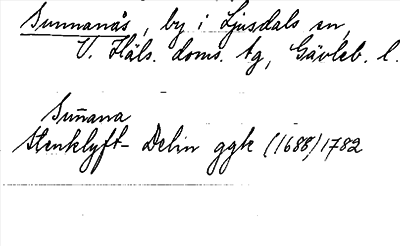 Sunnanås, by i Ljusdals sn,
V. Häls. doms. tg, Gävleb. l.
Sun̄ana
Stenklyft- Delin ggk (1688)1782